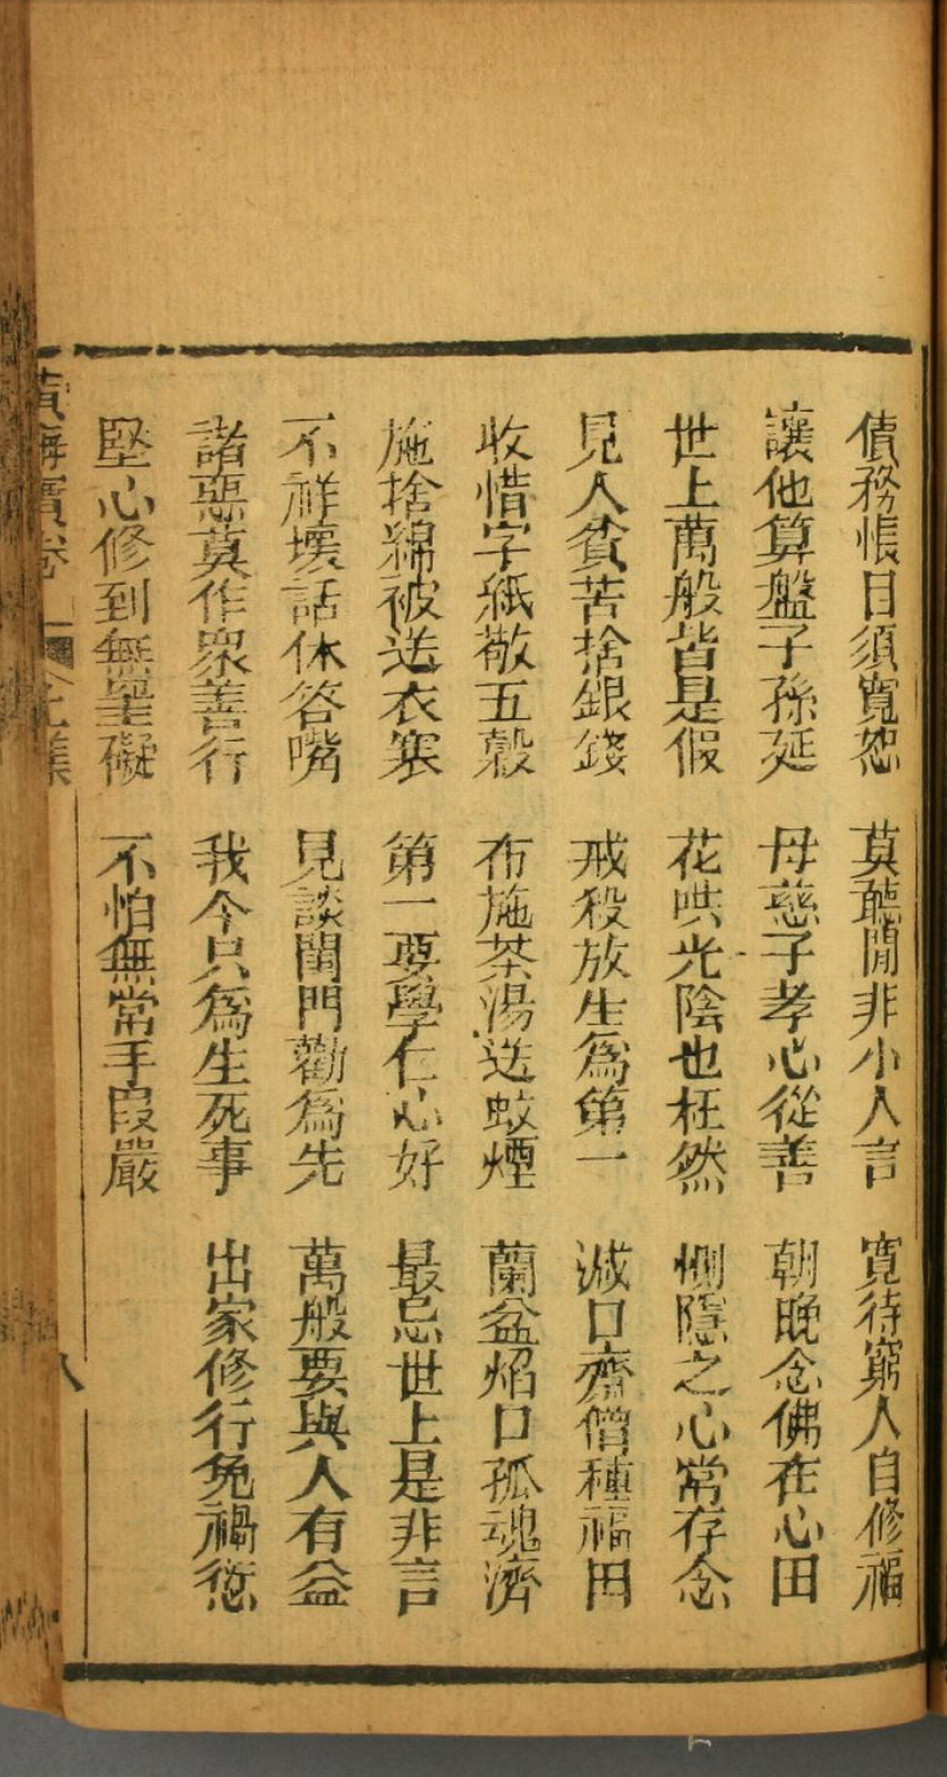 債務悵目須寬恕 莫聽閒非小人言 寬待窮人自修福
讓他算盤子孫延 母慈子孝心從善 朝晚念佛在心田
世上萬般皆是假 花哄光陰也枉然 惻隱之心常存念
見人貧苦捨銀錢 戒殺放生爲第一 減口齋僧種福田
收惜字紙敬五穀 布施茶湯送蚊煙 蘭盆焰口孤魂濟
施捨綿被送衣寒 第一要學仁心好 最忌世上是非言
不祥壞話休答嘴 見談閨門勸爲先 萬般要與人有益
諸惡莫作衆善行 我今只爲生死事 出家修行免禍愆
堅心修到無罣礙 不怕無常手段嚴
寶卷 集 八